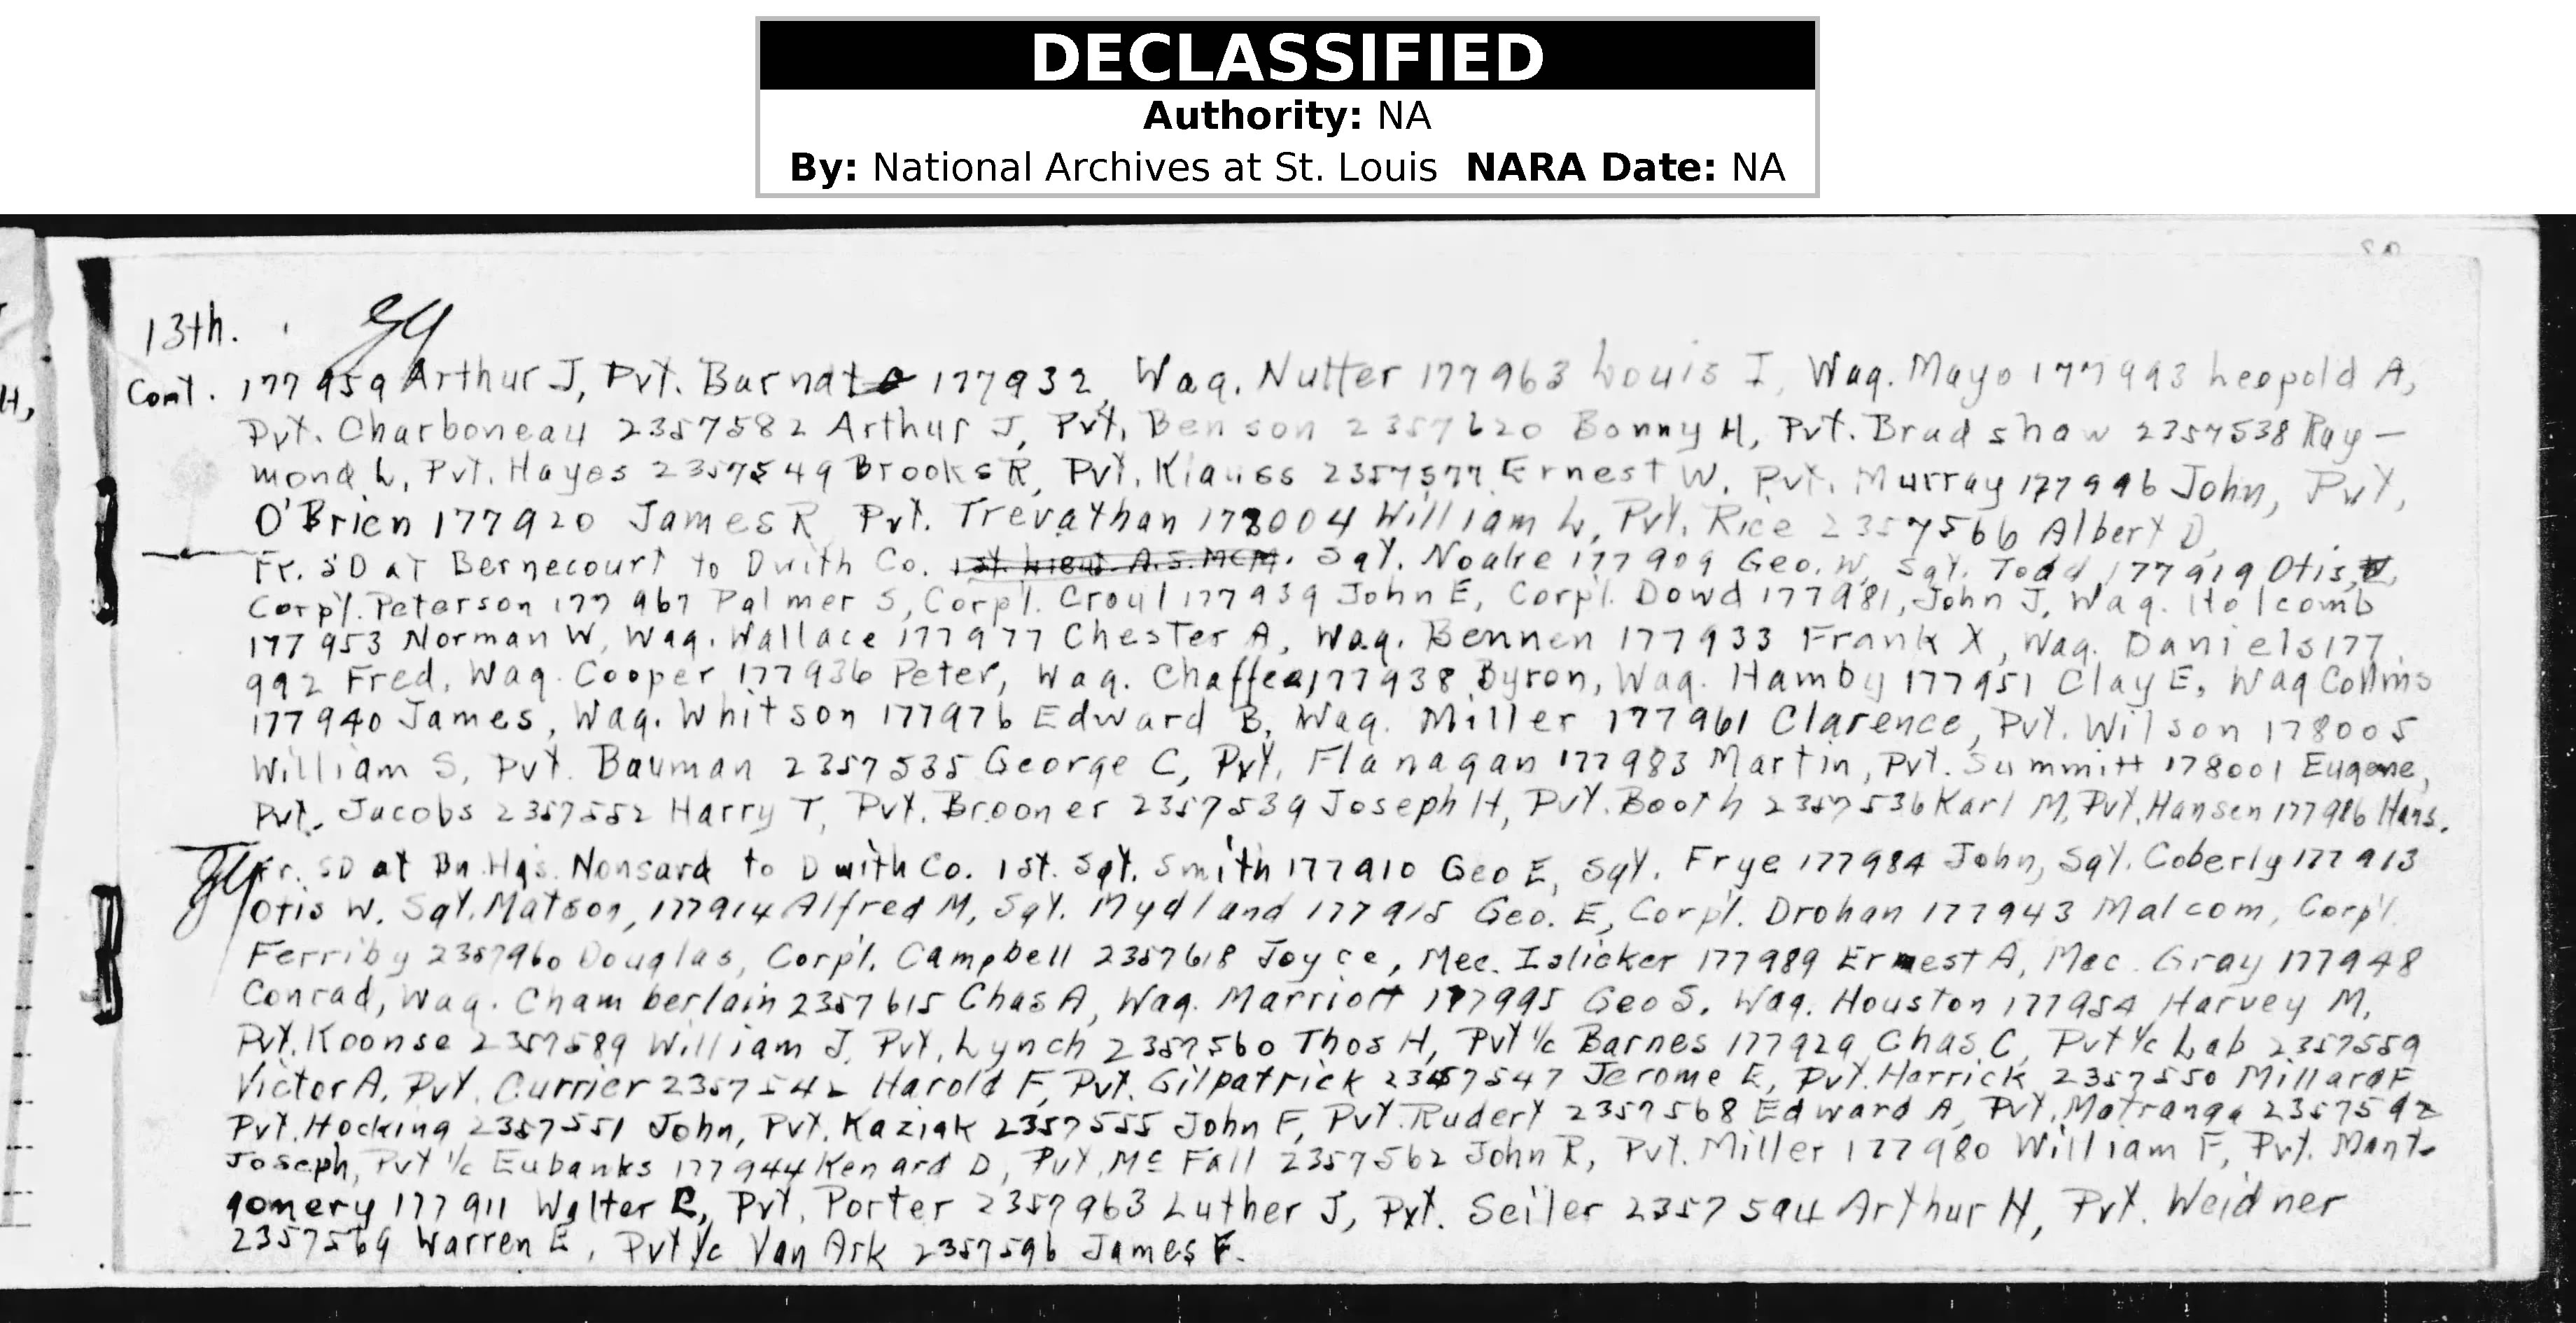 DECLASSIFIED
Authority: NA
By: National Archives at St. Louis NARA Date: NA
13th.
Cont. 177959 Arthur J, Pvt. Barnat 177932, Wag. Nutter 177963 Louis I, Wag. Mayo 177993 Leopold A,
Pvt. Charboneau 2357582 Arthur J, Pvt. Benson 2357620 Bonny H, Pvt. Bradshaw 2357538 Ray-
mond L, Pvt. Hayes 2357549 Brooks R, Pvt. Klauss 2357577 Ernest W, Pvt. Murray 177996 John, Pvt,
O'Brien 177920 James R Pvt. Trevathan 178004 William L, Pvt. Rice 2357566 Albert D,
Fr. SD at Bernecourt to D with Co. 1st. Lieut. A.S. MCM. Sgt. Noakre 177909 Geo. W, Sgt. Todd 177919 Otis,
Corp'l. Peterson 177967 Palmer S, Corp'l. Croul 177939 John E, Corp'l. Dowd 177981, John J, Wag. Holcomb
177953 Norman W, Wag. Wallace 177977 Chester A, Wag. Bennen 177933 Frank X, Wag. Daniels 177
992 Fred, Wag. Cooper 177936 Peter, Wag. Chaffea 177938 Byron, Wag. Hamby 177951 Clay E, Wag Collins
177940 James, Wag. Whitson 177976 Edward B, Wag. Miller 177961 Clarence, Pvt. Wilson 178005
William S, Pvt. Bauman 2357535 George C, Pvt. Flanagan 177983 Martin, Pvt. Summitt 178001 Eugene,
Pvt. Jacobs 2357552 Harry T, Pvt. Brooner 2357539 Joseph H, Pvt. Booth 2357536 Karl M, Pvt. Hansen 177986 Hans.
Fr. SD at Bn. Hqs. Nonsard to D with Co. 1st. Sgt. Smith 177910 Geo E, Sgt. Frye 177984 John, Sgt. Coberly 177913
Otis W. Sgt. Matson, 177914 Alfred M, Sgt. Mydland 177915 Geo. E, Corp'l. Drohan 177943 Malcom, Corp'l.
Ferriby 2357960 Douglas, Corp'l. Campbell 2357618 Joyce, Mec. Islicker 177989 Ernest A, Mec. Gray 177948
Conrad, Wag. Chamberlain 2357615 Chas A, Wag. Marriott 177995 Geo S, Wag. Houston 177954 Harvey M,
Pvt. Koonse 2357589 William J, Pvt. Lynch 2357560 Thos H, Pvt 1/c Barnes 177929 Chas. C, Pvt 1/c Lab 2357559
Victor A, Pvt. Currier 2357542 Harold F, Pvt. Gilpatrick 2357547 Jerome E, Pvt. Harrick 2357550 Millard F
Pvt. Hocking 2357551 John, Pvt. Kaziak 2357555 John F, Pvt. Rudert 2357568 Edward A, Pvt. Matranga 2357592
Joseph, Pvt 1/c Eubanks 177944 Kenard D, Pvt. Mc Fall 2357562 John R, Pvt. Miller 177980 William F, Pvt. Mont-
gomery 177911 Walter C, Pvt. Porter 2357963 Luther J, Pvt. Seiler 2357594 Arthur H, Pvt. Weidner
2357569 Warren E, Pvt 1/c Van Ark 2357596 James F.